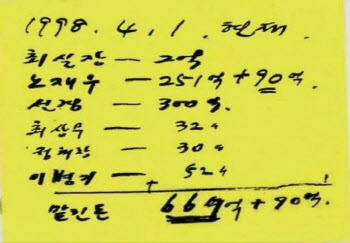 1998. 4. 1. 현재
최실장 — 2억
노재우 — 251억 + 90억.
선경 — 300억.
최상무 — 32〃
정재창 — 30〃
이병기 — 52〃
맡긴돈 667억 + 90억.